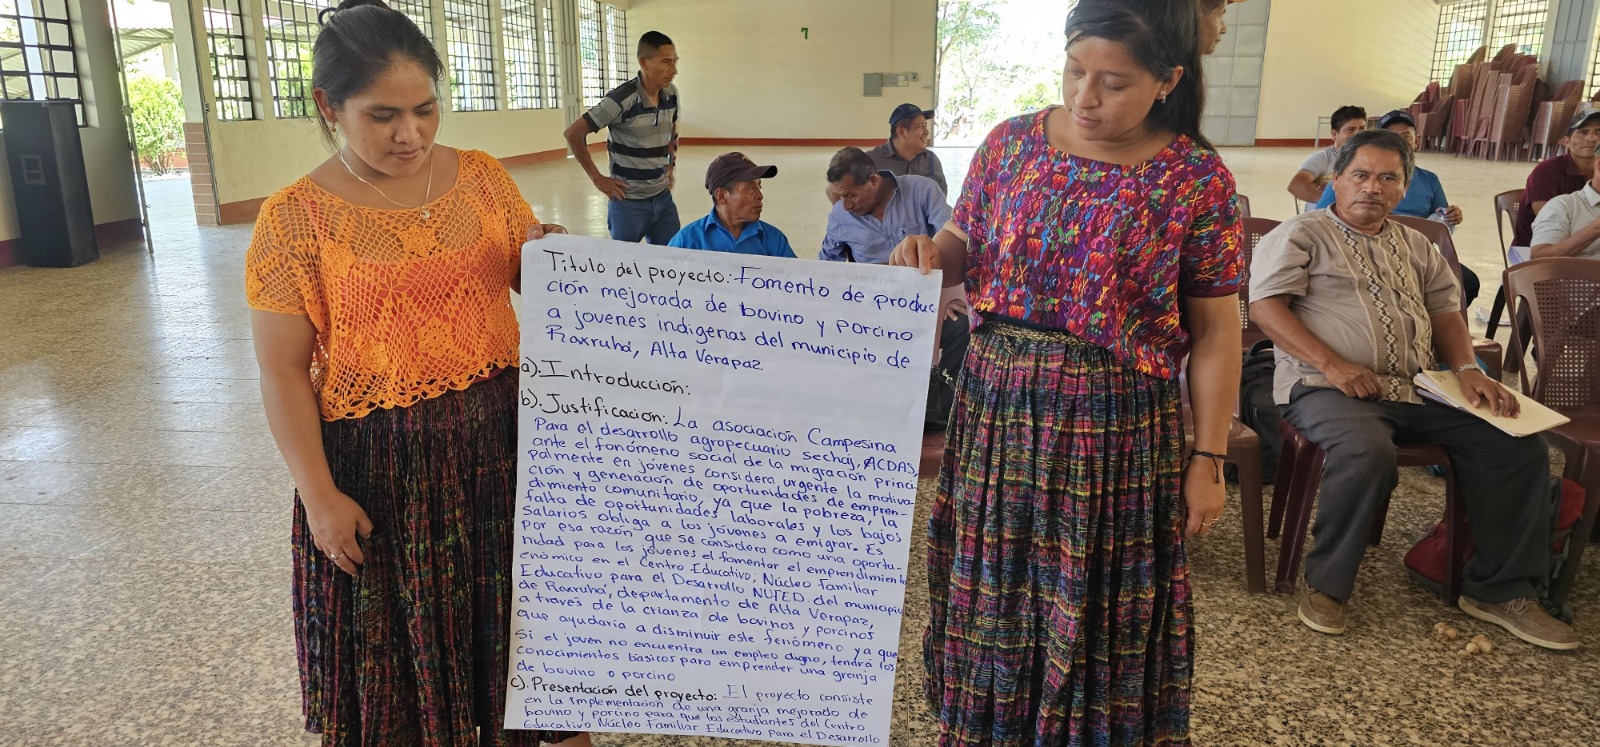 Título del proyecto: Fomento de produc-
ción mejorada de bovino y porcino
a jovenes indigenas del municipio de
Raxruhá, Alta Verapaz.
a). Introducción:
b). Justificación: La asociación Campesina
Para el desarrollo agropecuario sechaj, ACDAS,
ante el fonómeno social de la migración princi-
palmente en jóvenes considera urgente la motiva-
ción y generación de oportunidades de empren-
dimiento comunitario, ya que la pobreza, la
falta de oportunidades laborales y los bajos
salarios obliga a los jóvenes a emigrar. Es
por esa razón que se considera como una oportu-
nidad para los jóvenes el fomentar el emprendimiento
enómico en el Centro Educativo, Núcleo Familiar
Educativo para el Desarrollo NUFED. del municipio
de Raxruhá, departamento de Alta Verapaz,
a través de la crianza de bovinos y porcinos
que ayudaria a disminuir este fenómeno ya que
si el joven no encuentra un empleo digno, tendrá los
conocimientos básicos para emprender una granja
de bovino o porcino
c). Presentación del proyecto: El proyecto consiste
en la implementación de una granja mejorado de
bovino y porcino para que los estudiantes del Centro
Educativo Núcleo Familiar Educativo para el Desarrollo
7